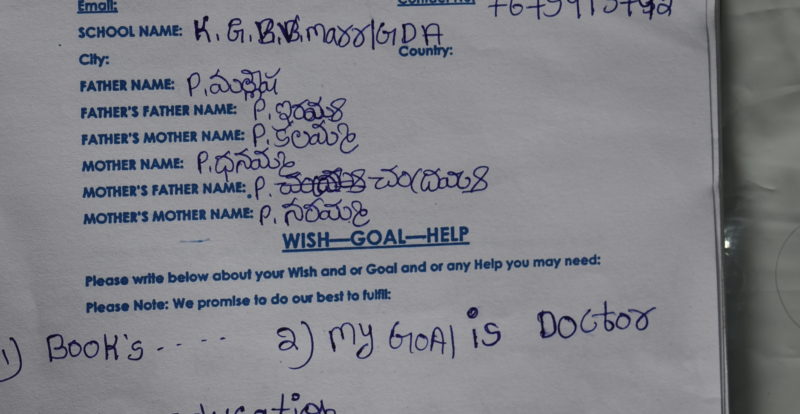 Email:
SCHOOL NAME: K.G.B.V. marri GDA
City: Country:
FATHER NAME: P. మల్లేష
FATHER'S FATHER NAME: P.
FATHER'S MOTHER NAME: P. కలమ్మ
MOTHER NAME: P. ధనమ్మ
MOTHER'S FATHER NAME: P. చంద్రయ్య
MOTHER'S MOTHER NAME: P. నరమ్మ
WISH—GOAL—HELP
Please write below about your Wish and or Goal and or any Help you may need:
Please Note: We promise to do our best to fulfil:
1) BOOK's ..... 2) my GOAl is DOCtor